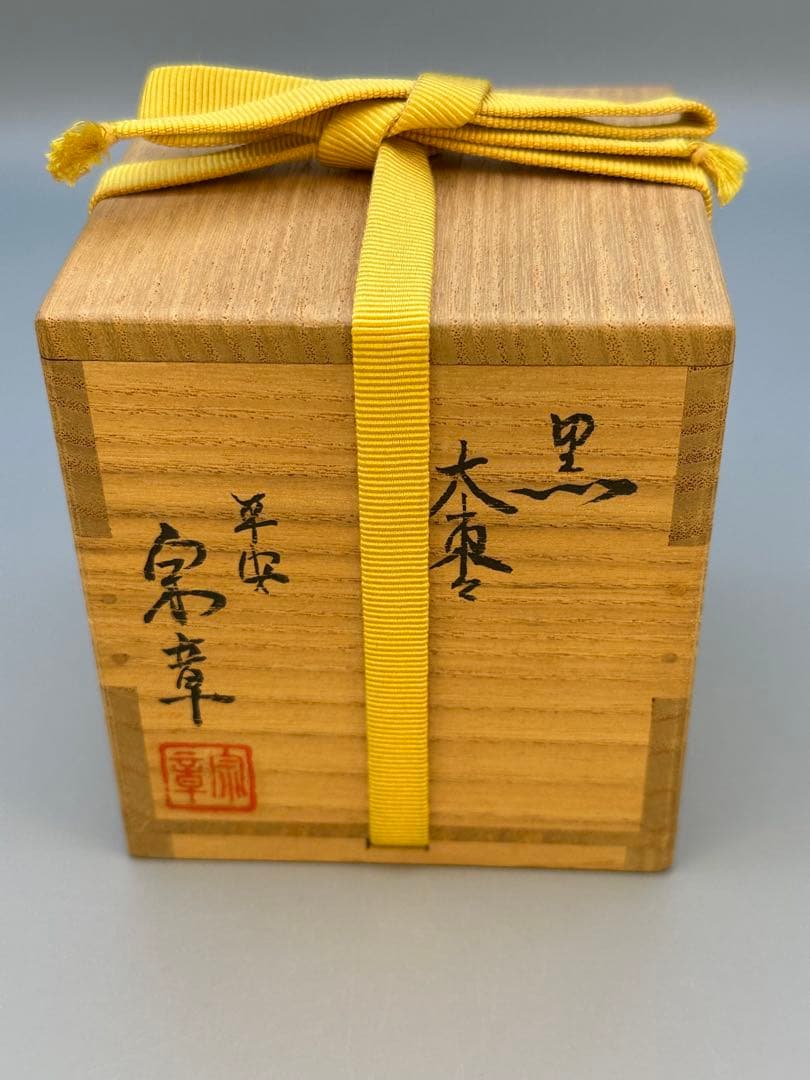 黒
大棗
平安
宗章
宗章